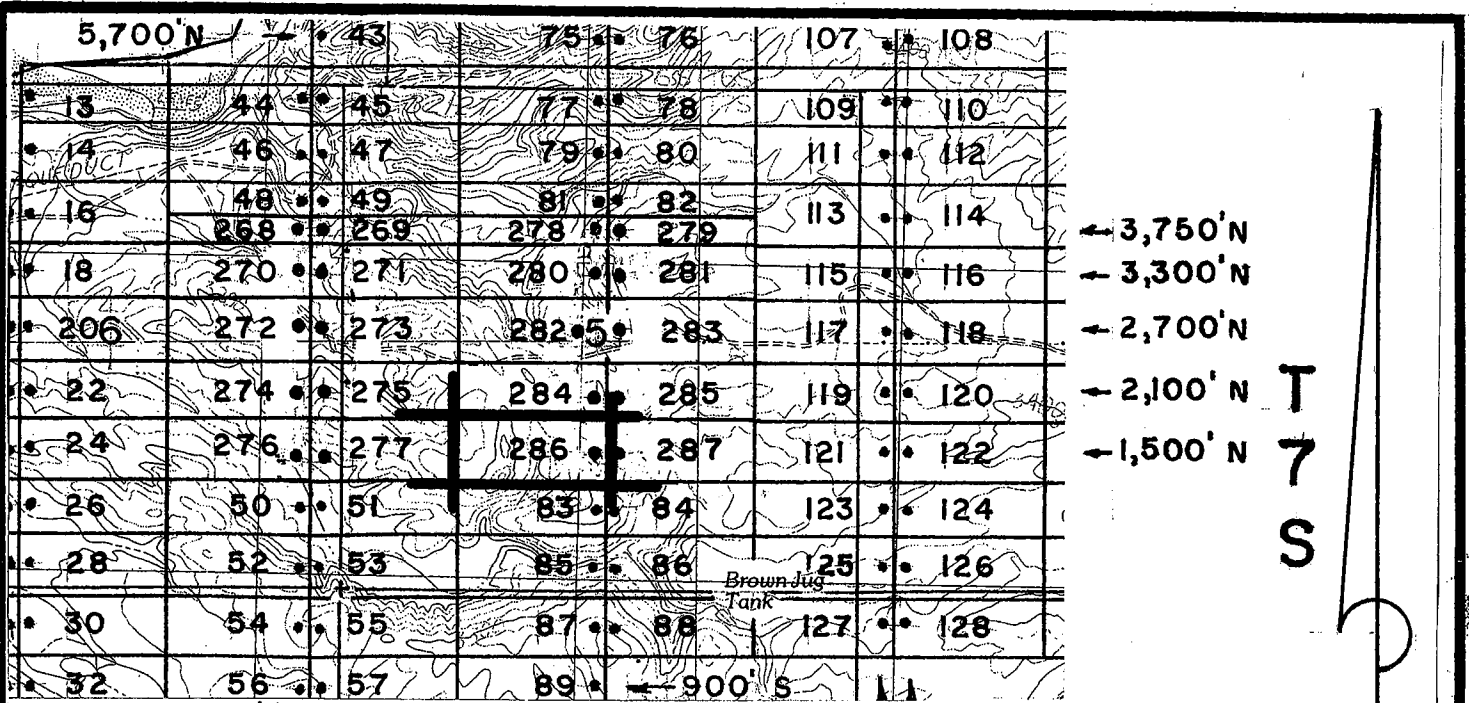 5,700'N 43 75 76 107 108
13 44 45 77 78 109 110
14 46 47 79 80 111 112
AQUEDUCT
16 48 49 81 82 113 114
268 269 278 279 ← 3,750'N
18 270 271 280 281 115 116 ← 3,300'N
206 272 273 282 5 283 117 118 ← 2,700'N
22 274 275 284 285 119 120 ← 2,100'N
24 276 277 286 287 121 122 ← 1,500'N
T
7
S
26 50 51 83 84 123 124
28 52 53 85 86 125 126
Brown Jug
Tank
30 54 55 87 88 127 128
32 56 57 89 ← 900'S